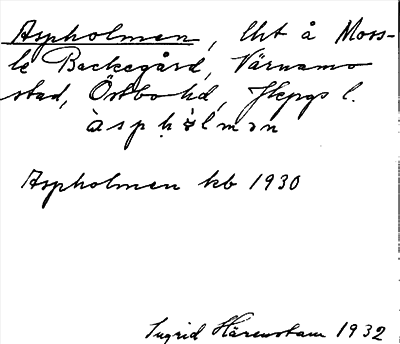 Aspholmen, lht å Moss-
le Backegård, Värnamo
stad, Östbo hd, Jkpgs l.
àsphòlmən
Aspholmen kb 1930
Ingrid Härenstam 1932